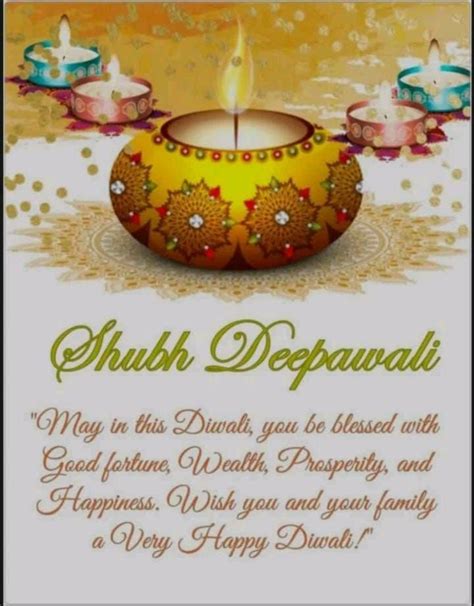 Shubh Deepawali
"May in this Diwali, you be blessed with
Good fortune, Wealth, Prosperity, and
Happiness. Wish you and your family
a Very Happy Diwali!"